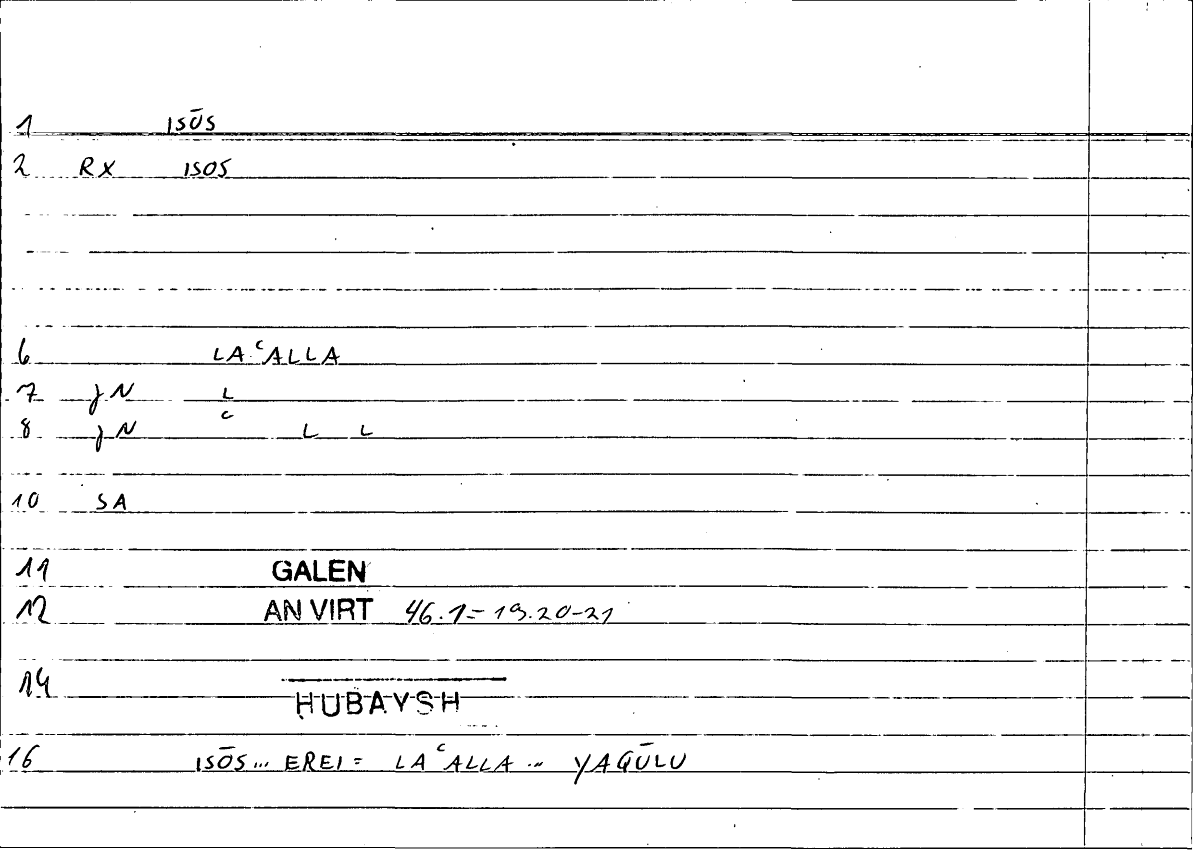 1 ISŌS
2 RX ISOS
6 LAʿALLA
7 JN L
8 JN ʿ L L
10 SA
11 GALEN
12 AN VIRT 46.1=19.20-21
14 ḤUBAYSH
16 ISŌS... EREI = LAʿALLA ... YAQŪLU